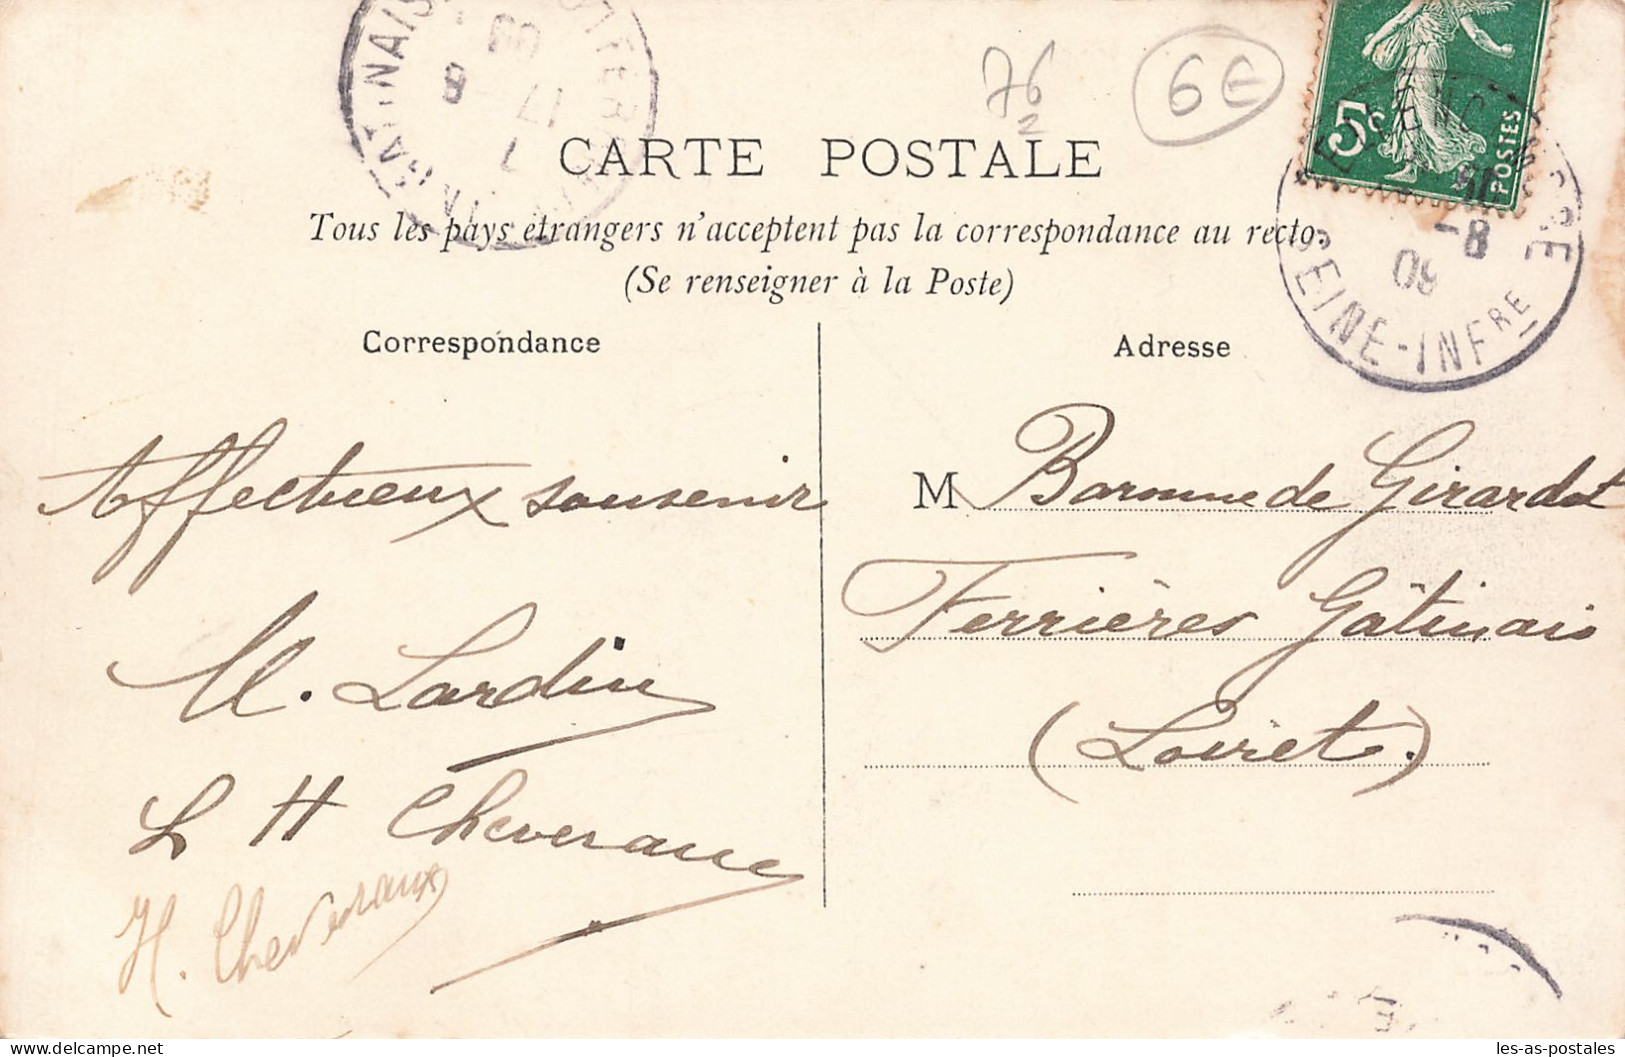 76
2
6€
5c
POSTES
SEINE-INFRE
8-
09
GATINAIS
17 - 8
09
CARTE POSTALE
Tous les pays étrangers n'acceptent pas la correspondance au recto.
(Se renseigner à la Poste)
Correspondance
Adresse
Affectueux souvenir
M. Lardin
L H Cheveraux
H. Cheveraux
M Baronne de Girardot
Ferrières Gâtinais
(Loiret.)
les-as-postales